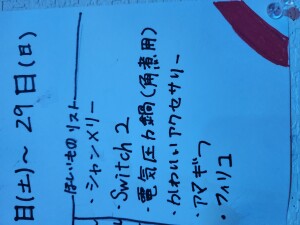 日(土)〜29日(日)
ほしいものリスト
・シャンメリー
・Switch2
・電気圧力鍋(角煮用)
・かわいいアクセサリー
・アマギフ